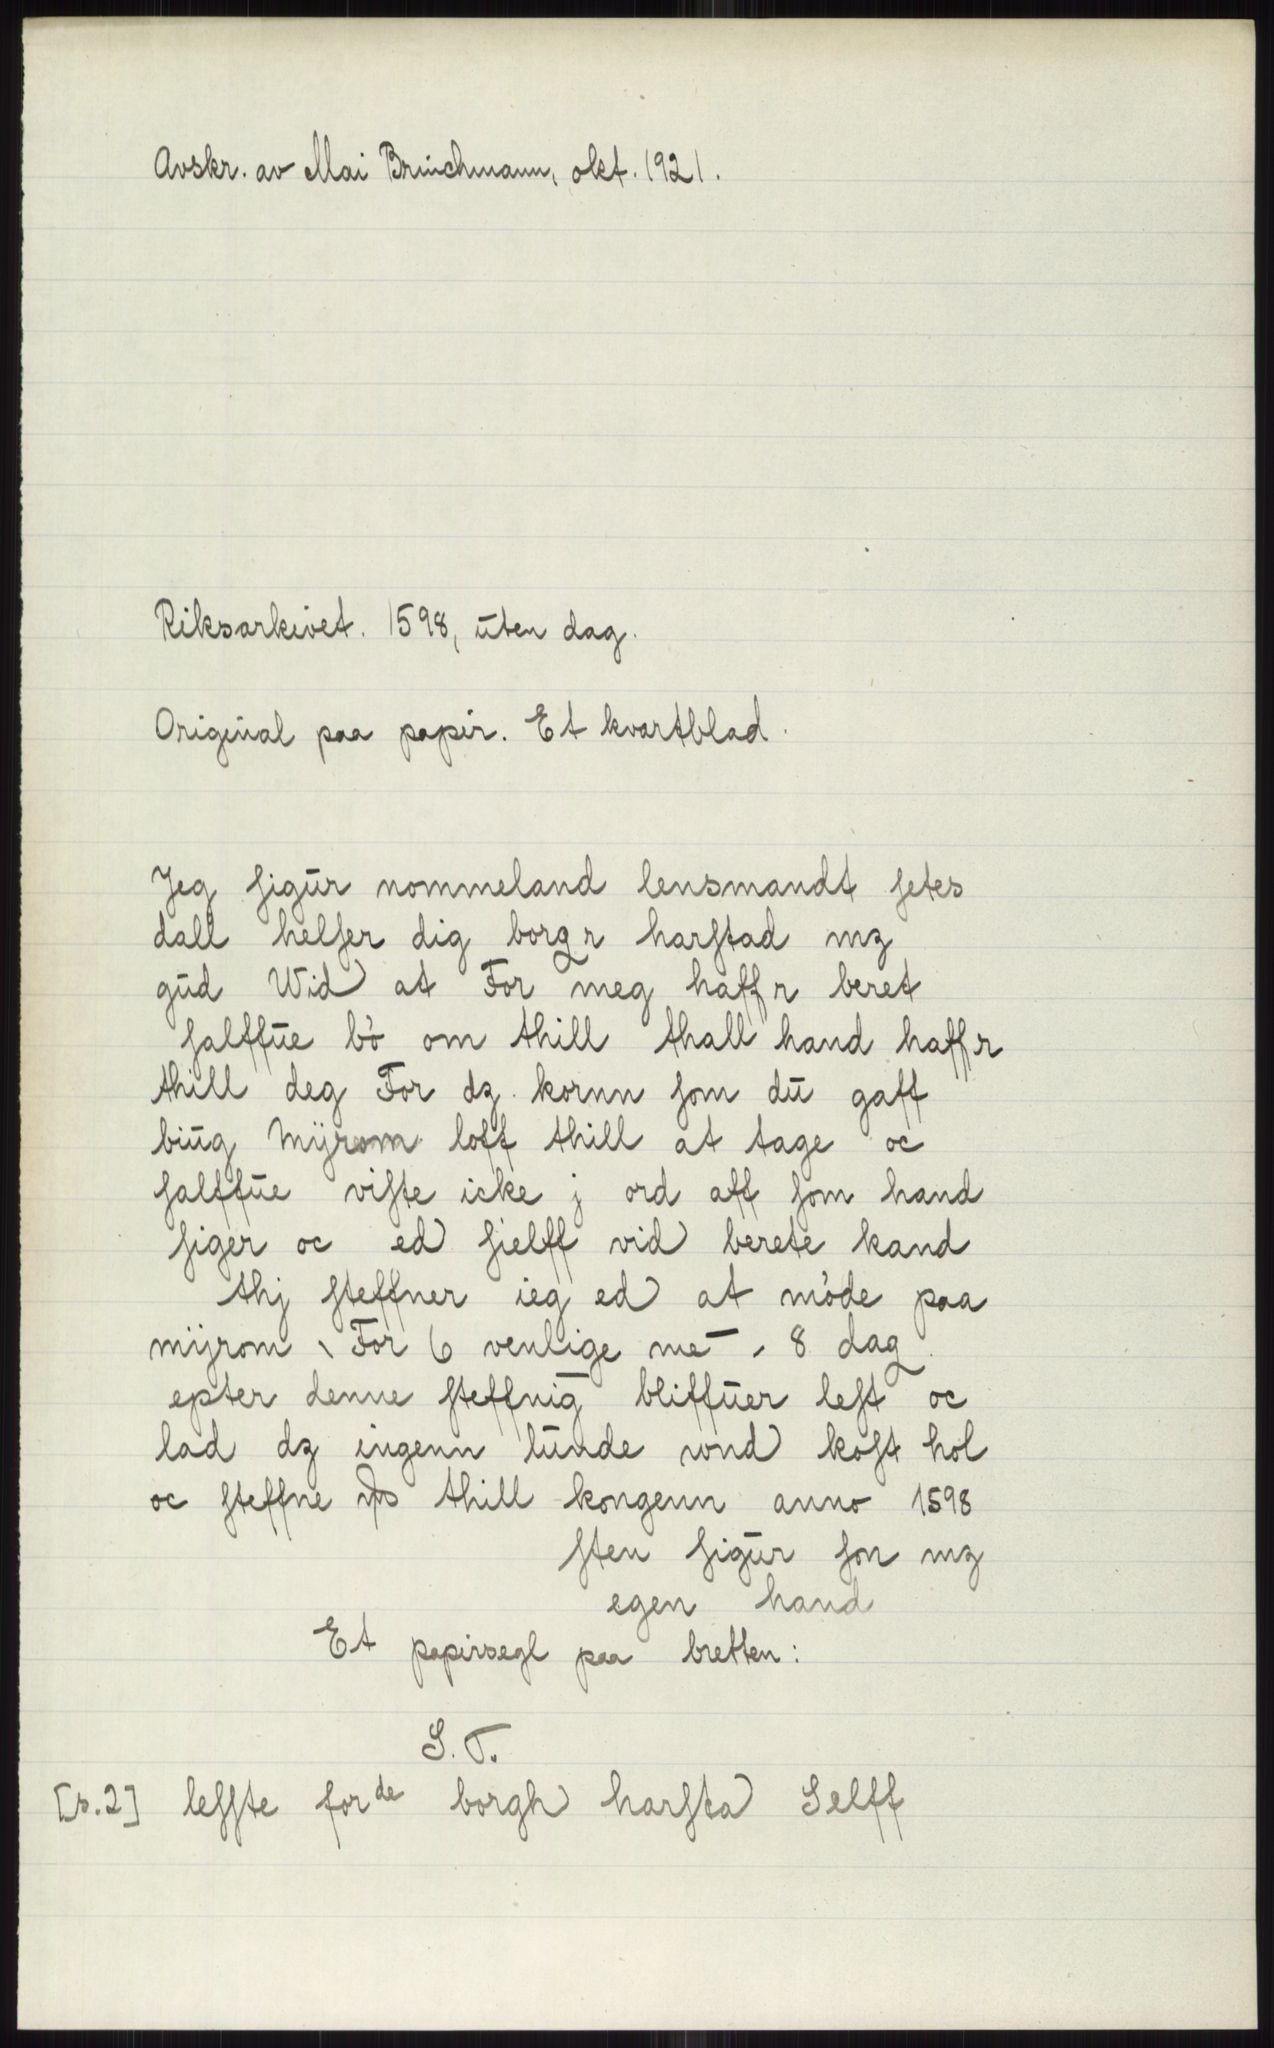 Avskr. av Mai Brinchmann, okt. 1921.
Riksarkivet. 1598, uten dag.
Original paa papir. Et kvartblad.
Jeg sigur nommeland lensmandt setes
dall helser dig borgr harstad mz
gud Wid at For meg haffr beret
salffue bò om thill thall hand haffr
thill deg For dz kornn som du gaff
biug Mÿrom loff thill at tage oc
salffue viste icke j ord aff som hand
siger oc ed sielff vid berete kand
thj steffner ieg ed at mòde paa
mÿrom For 6 venlige me- 8 dag
epter denne steffnig bliffuer lest oc
lad dz ingenn lunde vnd kost hol
oc steffne thill kongenn anno 1598
sten sigur son mz
egen hand
Et papirsegl paa bretten:
S. T.
[s.2] lesste forde borgh harsta Selff